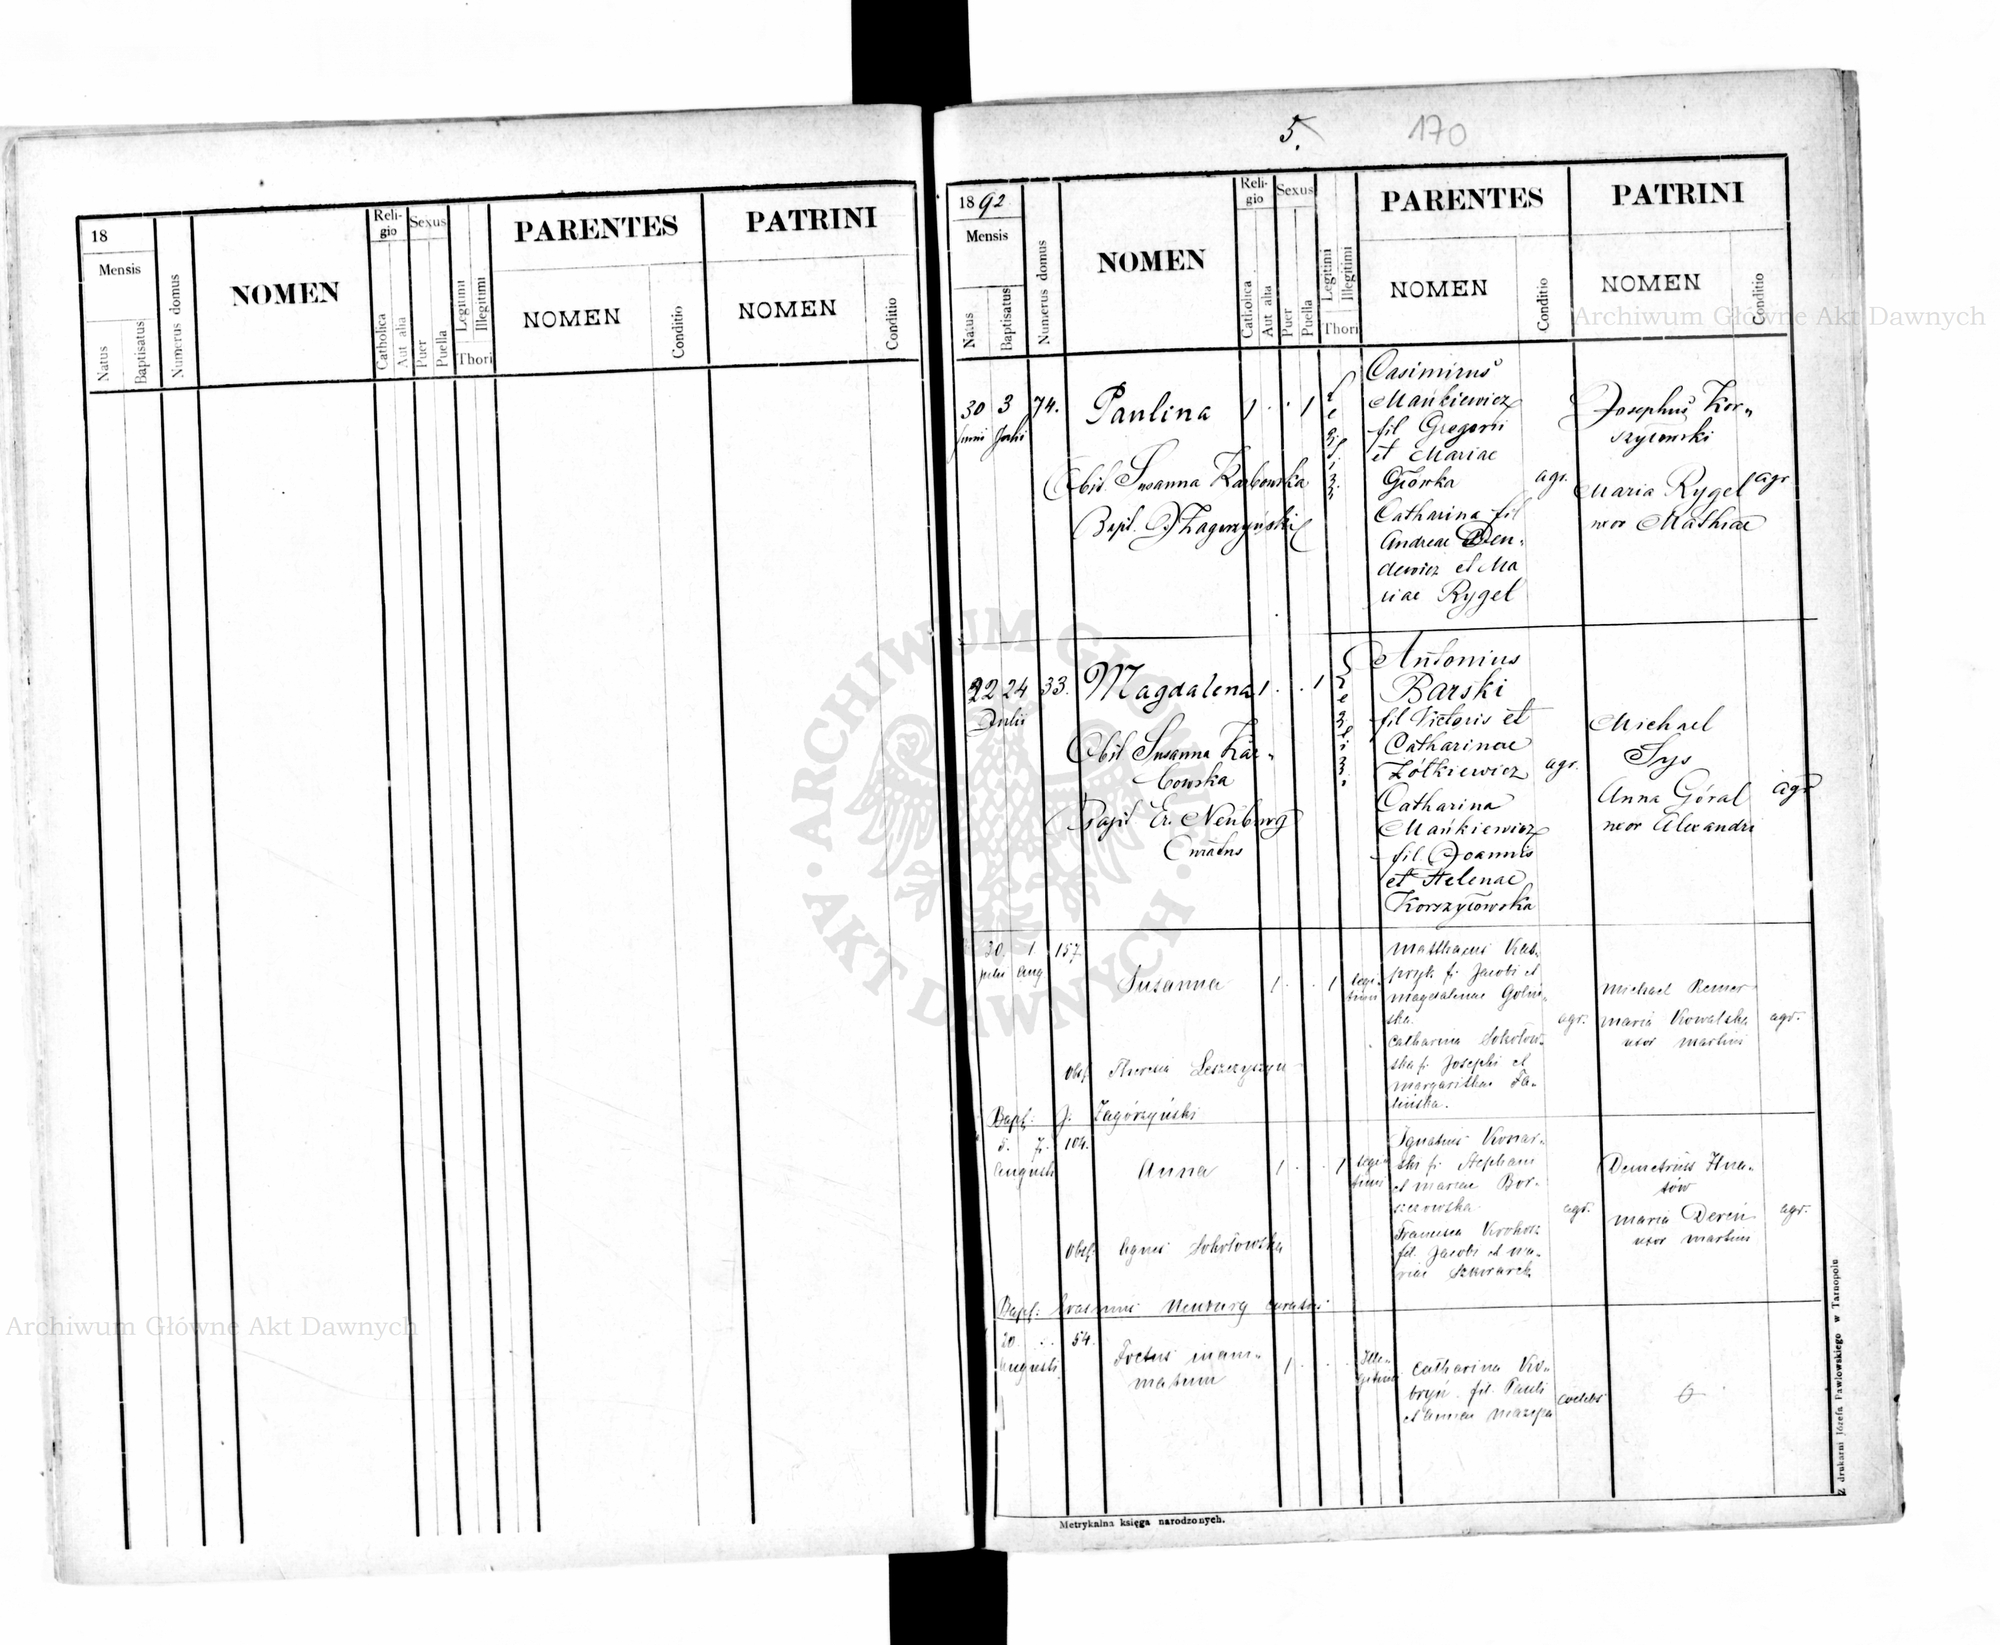 18
Mensis
Natus
Baptisatus
Numerus domus
NOMEN
Reli-
gio
Catholica
Aut alia
Sexus
Puer
Puella
Legitimi
Illegitimi
Thori
PARENTES
NOMEN
Conditio
PATRINI
NOMEN
Conditio
5.
170
1892
Mensis
Natus
Baptisatus
Numerus domus
NOMEN
Reli-
gio
Catholica
Aut alia
Sexus
Puer
Puella
Legitimi
Illegitimi
Thori
PARENTES
NOMEN
Conditio
PATRINI
NOMEN
Conditio
30 3 74. Paulina 1 . . 1
Junii Julii
Obst. Susanna Karbowska
Bapt. J Zagorzyński
Casimirus
Mańkiewicz
fil Gregorii
et Mariae
Główka
Catharina fil
Andreae Den-
dewicz et Ma
riae Rygel
agr.
Josephus Kor-
szyłowski
Maria Rygel
uxor Mathiae
agr
22 24 33. Magdalena 1 . . 1
Julii
Obst Susanna Kar-
bowska
Bapt Er. Neuburg
Curatus
Antonius
Barski
fil Victoris et
Catharinae
Żółkiewicz
Catharina
Mańkiewicz
fil. Joannis
et Helenae
Korszyłowska
agr.
Michael
Sys
Anna Góral
uxor Alexandri
agr
30. 1 157.
Julii Aug
Susanna 1 . . 1 legi-
timi
obst. Theresia Leszczyszyn
Bapt: J. Zagórzyński
Matthaeus Kas-
pryk f. Jacobi et
Magdalenae Goliń-
ska.
Catharina Sokołow-
ska f. Josephi et
Margarithae Fa-
lińska.
agr.
Michael Remer
Maria Kowalska
uxor Martini
agr.
5. 7. 104.
Augusti
Anna 1 . . 1 legi-
timi
obst. Agnes Sokołowska
Bapt: Erasmus Neuburg curatus
Ignatius Konar-
ski f. Stephani
et Mariae Bor-
szczowska
Francisca Krokosz
fil. Jacobi et Ma-
riae Szkwarek
agr.
Demetrius Hna-
tów
Maria Dereń
uxor Martini
agr.
20. .. 54.
Augusti
Foetus inani-
matum
1 . . .
Ille-
gitimi
Catharina Ko-
bryń fil. Pauli
et Annae Mazepa
coelebs
Metrykalna księga narodzonych.
Z drukarni Józefa Pawłowskiego w Tarnopolu
Archiwum Główne Akt Dawnych
Archiwum Główne Akt Dawnych
ARCHIWUM GŁÓWNE
· AKT DAWNYCH ·